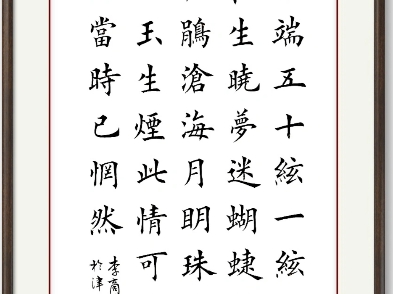 端五十絃一絃
生曉夢迷蝴蜨
鵑滄海月明珠
玉生煙此情可
當時已惘然
李商
於津